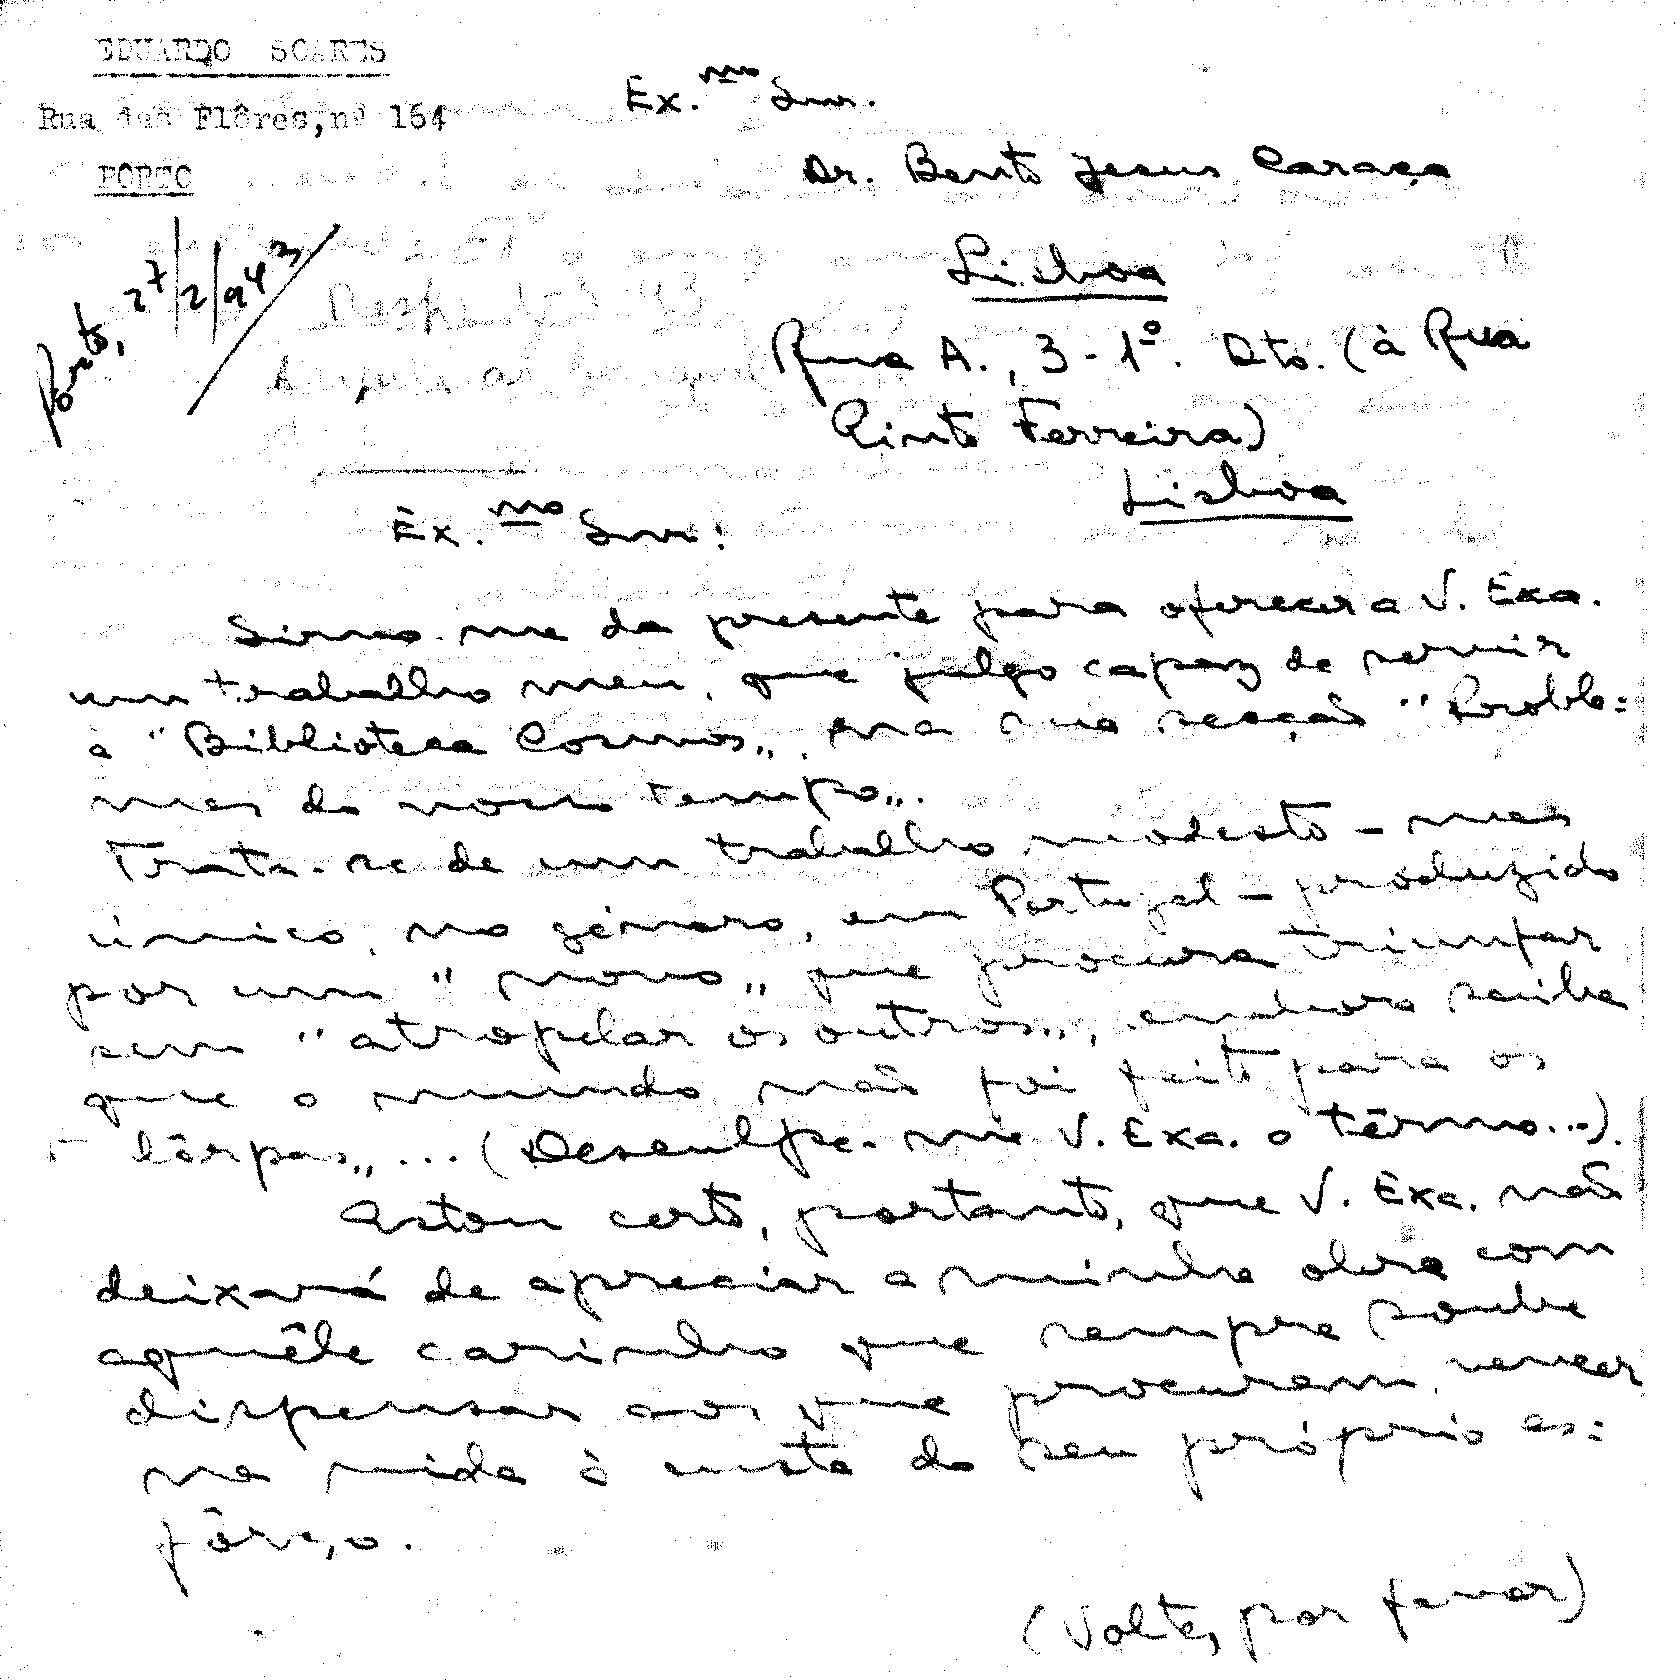 EDUARDO SOARES
Rua das Flôres, nº 164
PORTO
Porto, 27/2/943
Ex.mo Snr.
Dr. Bento Jesus Caraça
Lisboa
Rua A., 3-1º. Dto. (à Rua
Pinto Ferreira)
Lisboa
Ex.mo Snr:
Sirvo-me da presente para oferecer a V. Exa.
um trabalho meu, que julgo capaz de servir
a "Biblioteca Cosmos", na sua secção "Proble=
mas do nosso tempo".
Trata-se de um trabalho modesto - mas
único, no género, em Portugal - produzido
por um "novo" que procura triunfar
sem "atropelar os outros", embora saiba
que o mundo não foi feito para os
"lêrpas"... (Desculpe-me V. Exa. o têrmo...).
Estou certo, portanto, que V. Exa. não
deixará de apreciar a minha obra com
aquêle carinho que sempre soube
dispensar aos que procuram vencer
na vida à custa do seu próprio es=
fôrço.
(Volte, por favor)